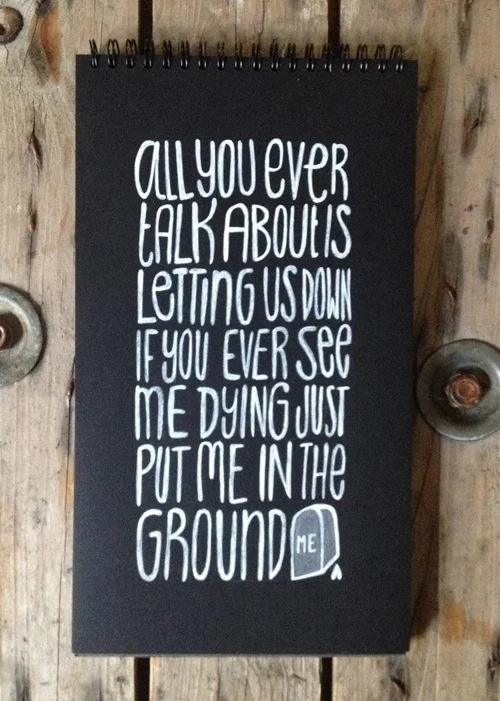 aLLYOU eveR
tALK ABOUt iS
LeTTinG US DOWN
iF YOU EVER See
ME DYING JUST
PUT ME IN THe
GROUND ME